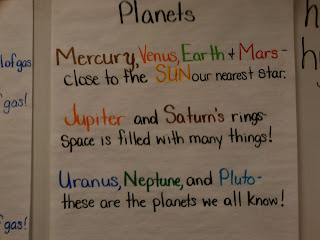 Planets
l of gas
Mercury, Venus, Earth + Mars-
close to the SUN our nearest star.
gas!
Jupiter and Saturn's rings-
space is filled with many things!
Uranus, Neptune, and Pluto-
these are the planets we all know!
gas!